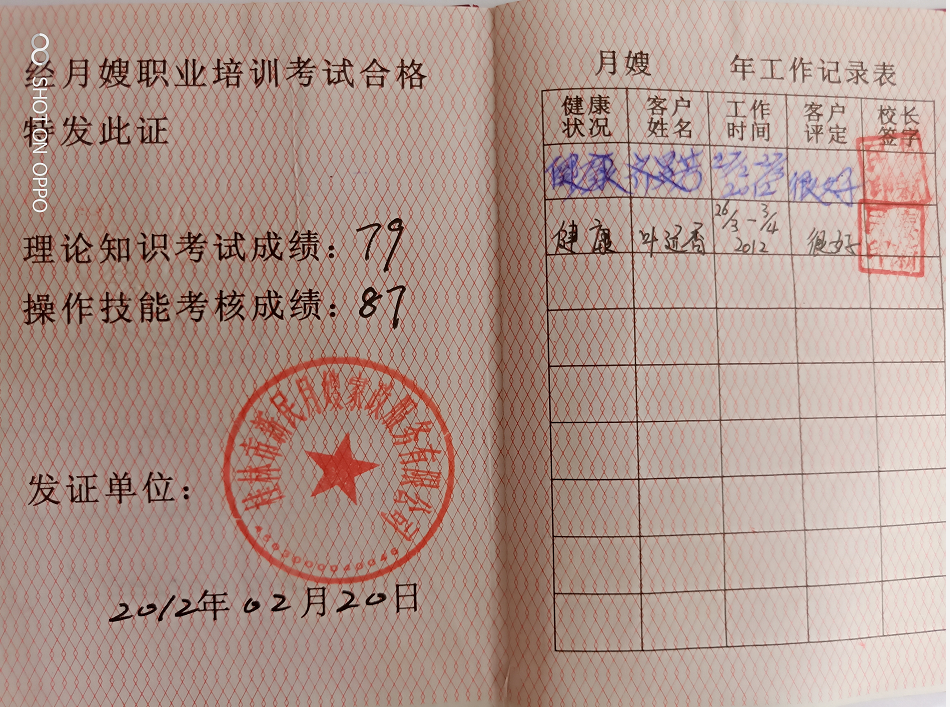 SHOT ON OPPO
经月嫂职业培训考试合格
特发此证
理论知识考试成绩：79
操作技能考核成绩：87
发证单位：
桂林市新民月嫂家政服务有限公司
2012年02月20日
月嫂 年工作记录表
健康状况 客户姓名 工作时间 客户评定 校长签字
健康 27/2-27/3 2012 很好
健康 26/3-3/4 2012 很好